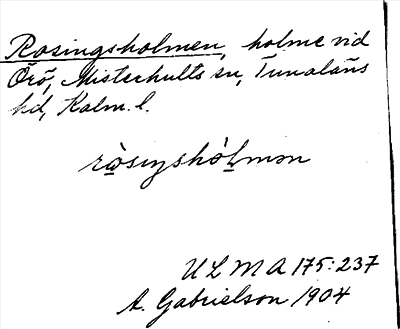 Rosingsholmen, holme vid
Örö, Misterhults sn, Tunaläns
hd, Kalm. l.
ULMA 175:237
A. Gabrielson 1904